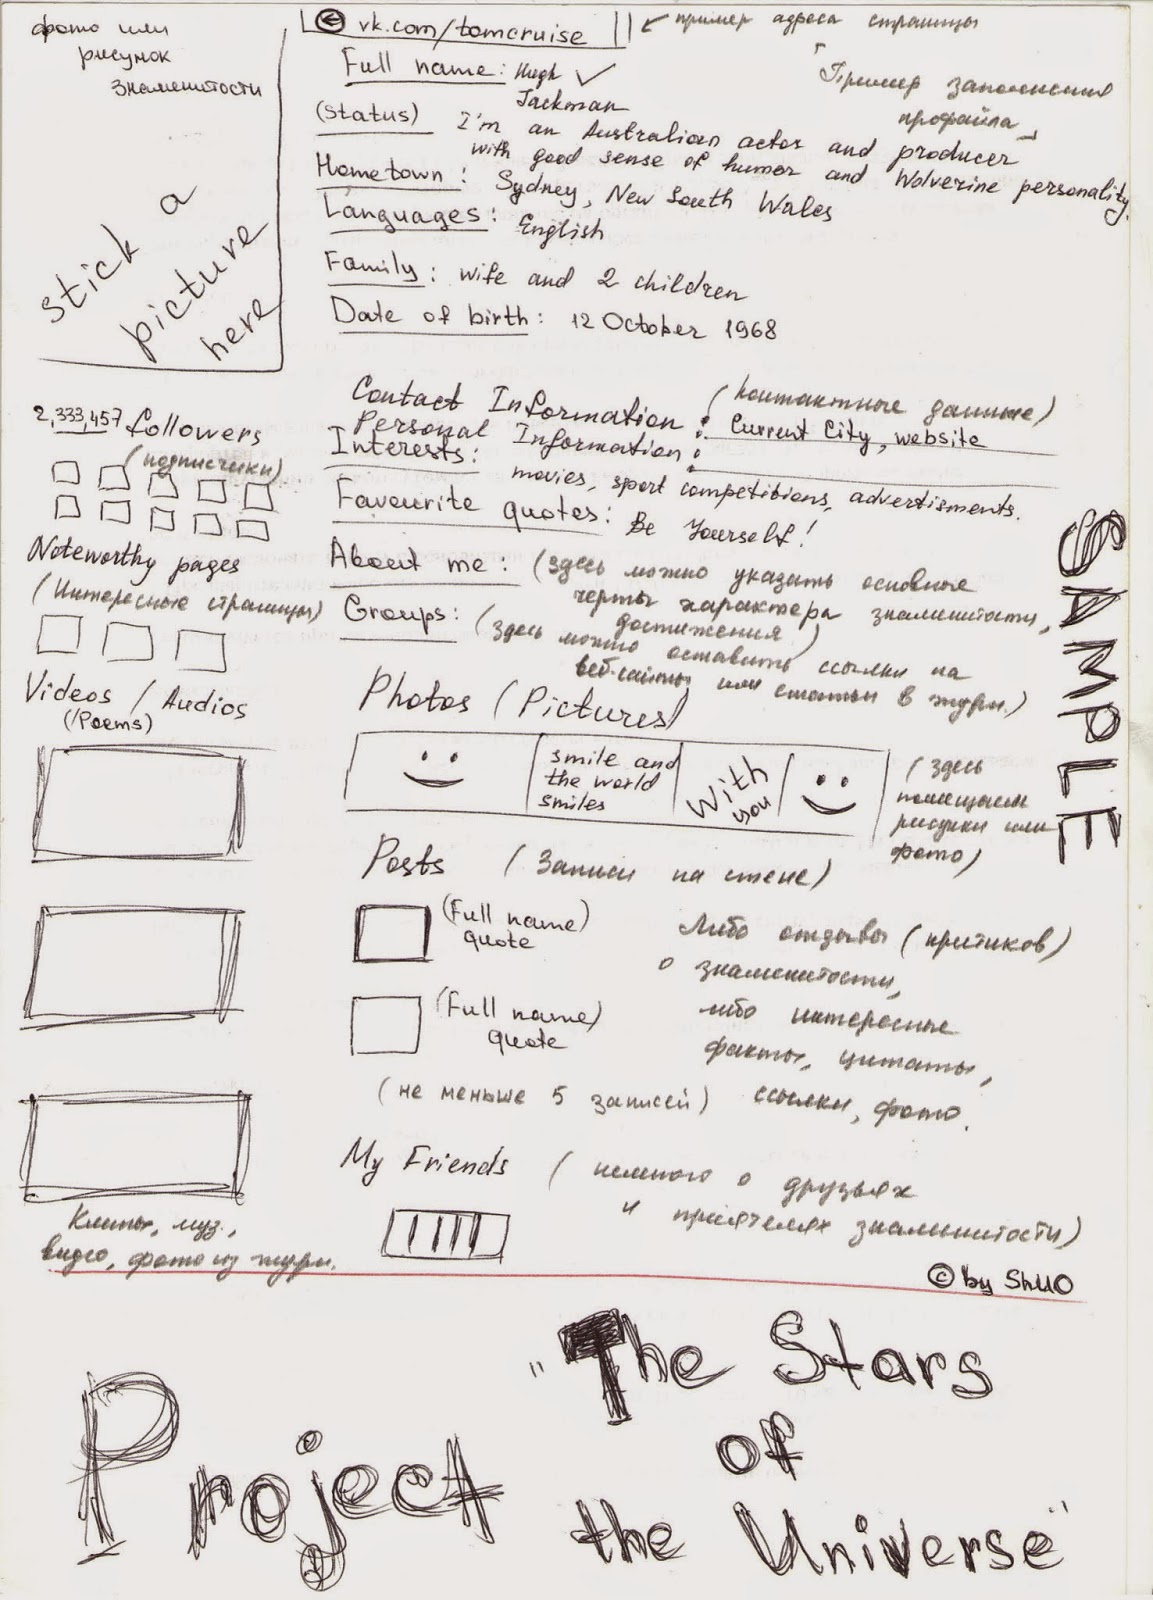 фото или
рисунок
знаменитости
stick a
picture
here
vk.com/tomcruise
пример адреса страницы
Full name: Hugh
Jackman
"Пример заполнения
профайла"
(status) I'm an Australian actor and producer
with good sense of humor and Wolverine personality.
Hometown: Sydney, New South Wales
Languages: English
Family: wife and 2 children
Date of birth: 12 October 1968
2,333,457 followers
(подписчики)
Noteworthy pages
(Интересные страницы)
Videos / Audios
(/Poems)
Клипы, муз.,
видео, фото из журн.
Contact Information: (контактные данные)
Current City, website
Personal Information:
Interests: movies, sport competitions, advertisments.
Favourite quotes: Be Yourself!
About me: (здесь можно указать основные
черты характера знаменитости,
достижения)
Groups: (здесь можно оставить ссылки на
веб-сайты или статьи в журн.)
Photos (Pictures)
smile and
the world
smiles
With
you
(здесь
помещаем
рисунки или
фото)
SAMPLE
Posts (Записи на стене)
(Full name)
quote
(Full name)
quote
Либо отзывы (критиков)
о знаменитости,
либо интересные
факты, цитаты,
ссылки, фото.
(не меньше 5 записей)
My Friends (немного о друзьях
и приятелях знаменитости)
© by ShUO
Project
"The Stars
of
the Universe"